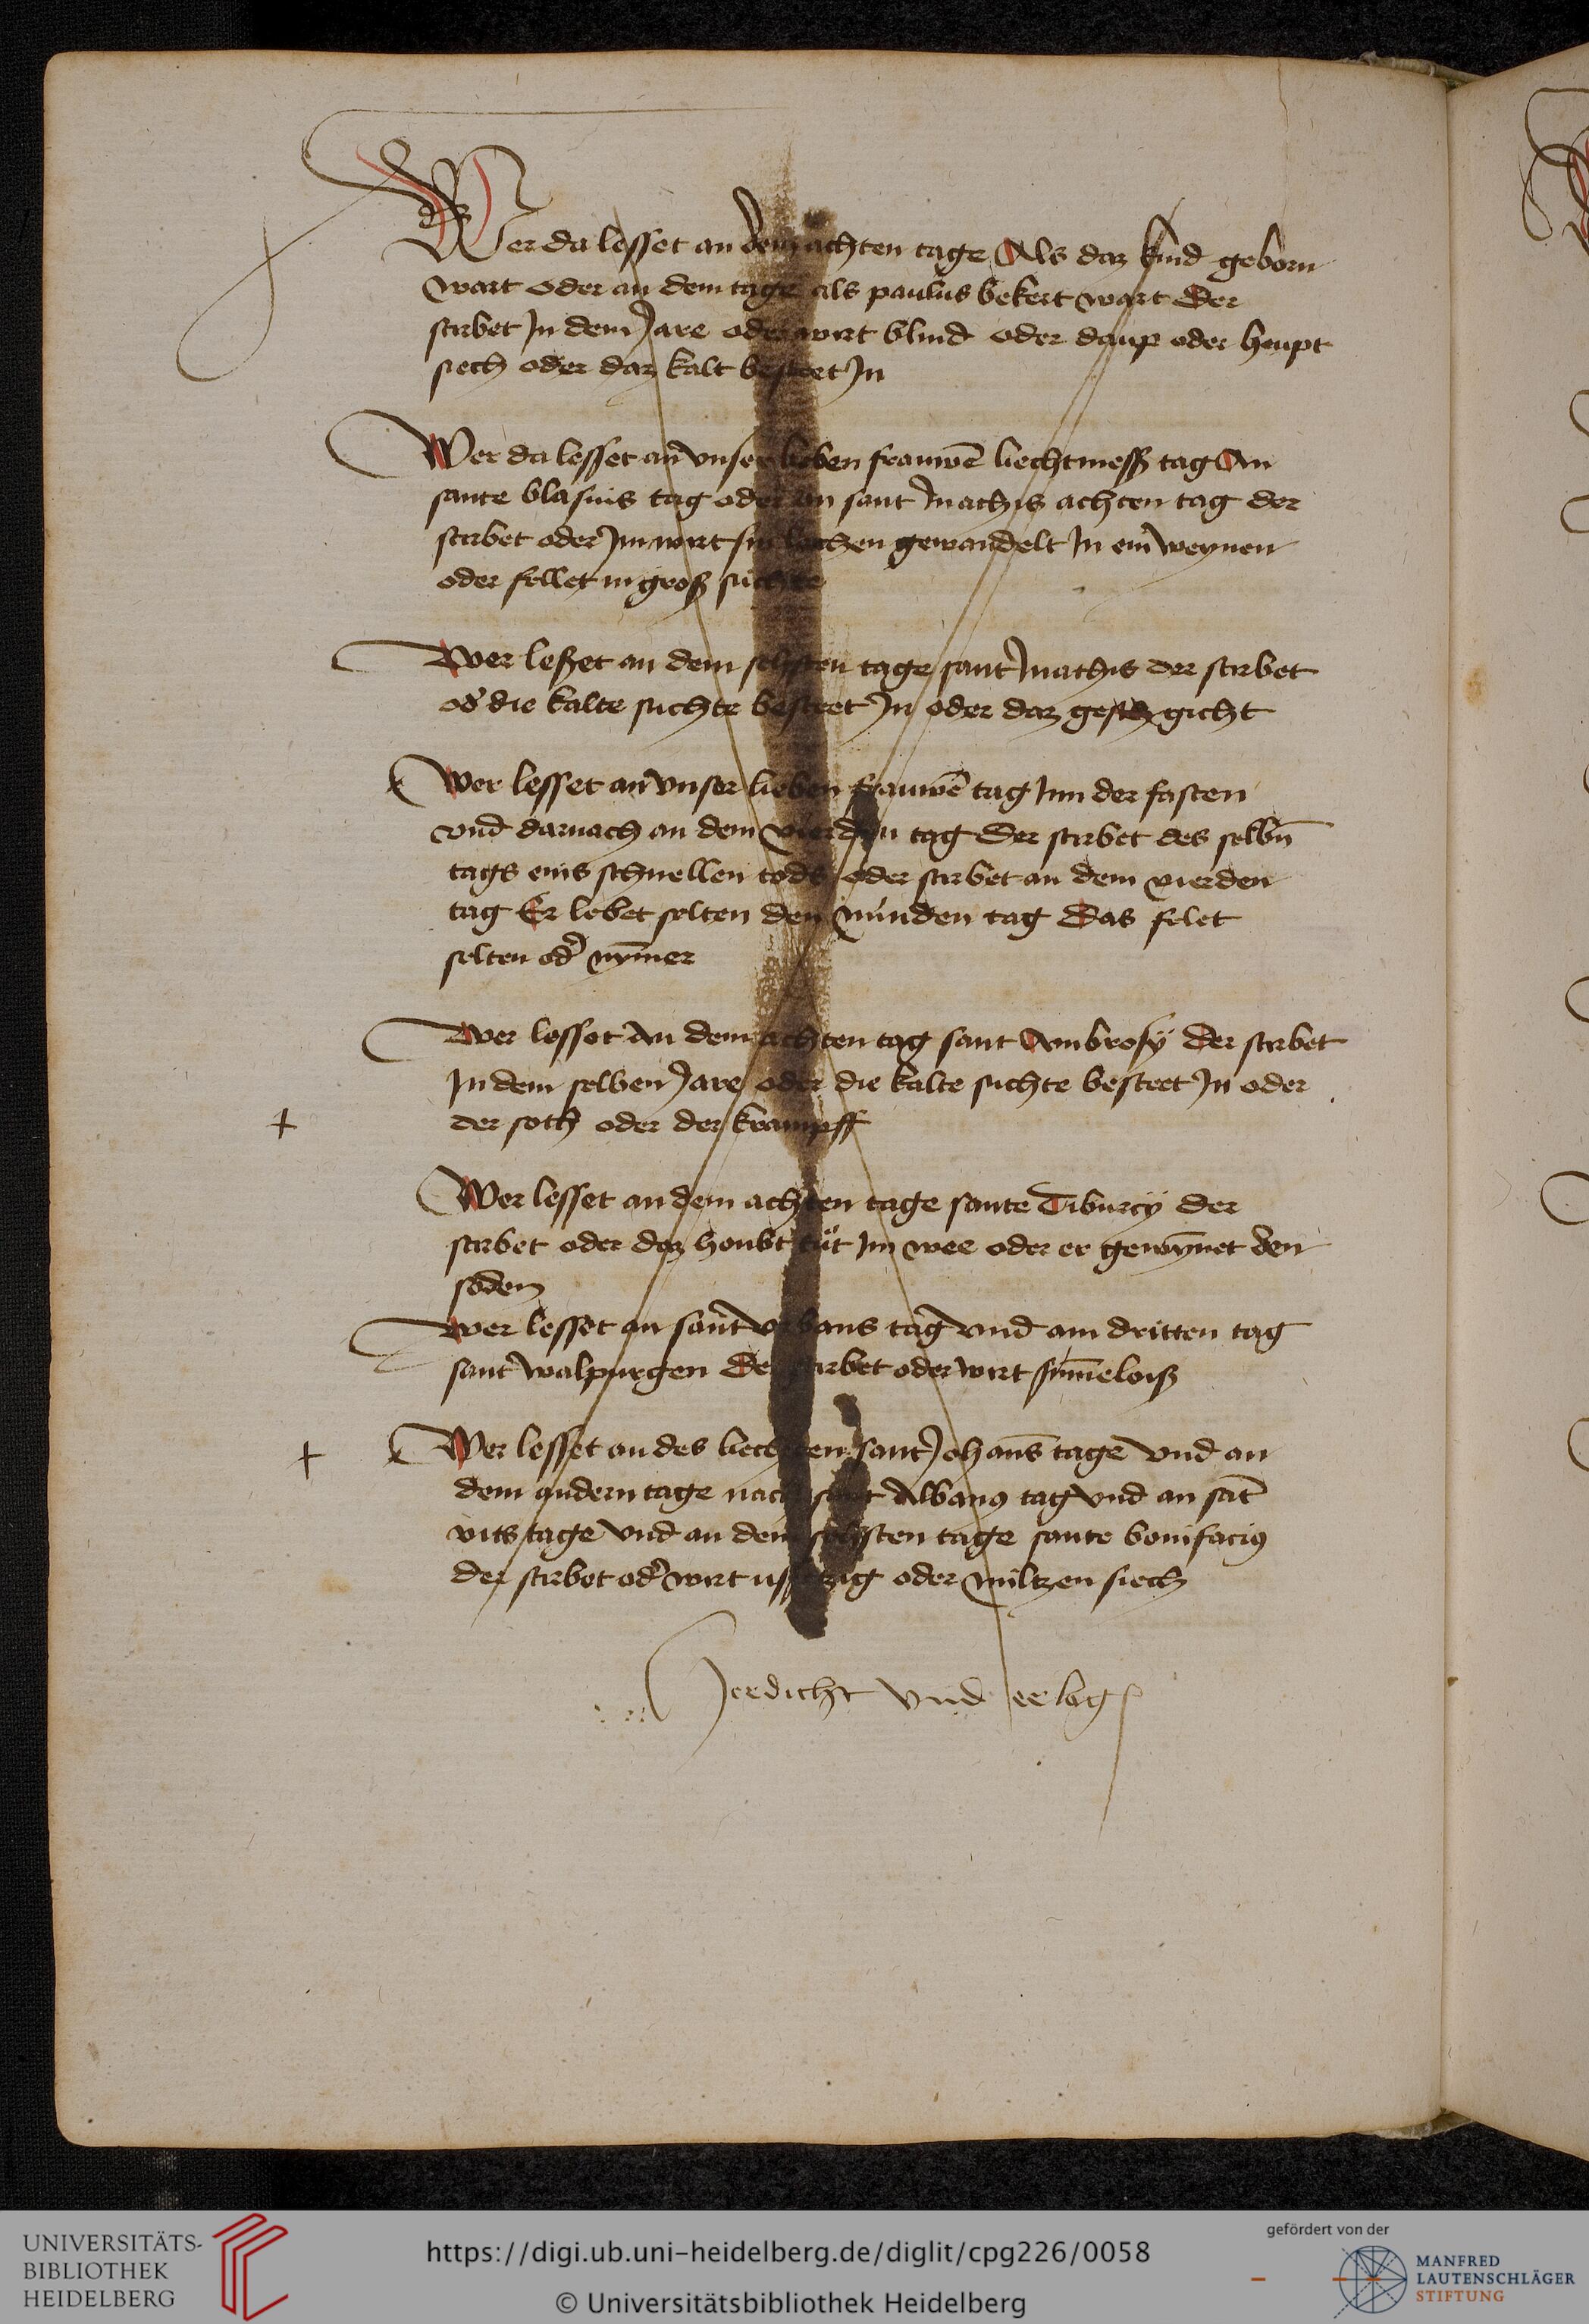 Wer da lesset an dem achten tage Als daz kind geborn
wart oder an dem tage als paulus bekert wart Der
stirbet In dem Jare oder wirt blind oder daup oder heupt
siech oder daz kalt besteet In
Wer da lesset an vnser lieben frauwē liechtmesß tag An
sante blasius tag oder an sant mathis achten tag der
stirbet oder Im wirt sin lachen gewandelt In ein weynen
oder fellet in groß suchte
Wer leßet an dem sehsten tage sant mathis der stirbet
od' die kalte suchte besteet In oder daz gicht
Wer lesset an vnser lieben frauwē tag Inn der fasten
vnd darnach an dem vierden tag Der stirbet des selbn̄
tags eins schnellen tods oder stirbet an dem vierden
tag Er lebet selten den núnden tag Das felet
selten od' nym̄er
Wer lesset An dem achten tag sant Ambrosÿ Der stirbet
In dem selben Jare oder die kalte suchte besteet In oder
+ der soth oder der krampff
Wer lesset an dem achten tage sante Tiburcÿ der
stirbet oder daz houbt tüt Im wee oder er gewyn̄et den
sodem
Wer lesset an sant vrbans tag vnd am dritten tag
sant walpurgen Der stirbet oder wirt sin̄eloiß
+ Wer lesset an des liechten sant Johans̄ tage vnd an
dem andern tage nach sant Albanus tag vnd an sat̄
vits tage vnd an dem sehsten tage sante bonifacius
der stirbet od' wirt ussetzig oder miltzen siech
Jerdicht vnd erlog
UNIVERSITÄTS-
BIBLIOTHEK
HEIDELBERG
https://digi.ub.uni-heidelberg.de/diglit/cpg226/0058
© Universitätsbibliothek Heidelberg
gefördert von der
MANFRED
LAUTENSCHLÄGER
STIFTUNG